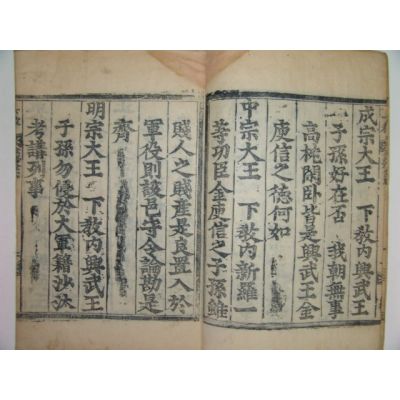 成宗大王 下教内興武王
子孫好在否 我朝無事
高枕閑卧皆是興武王金
庾信之德何如
中宗大王 下教内新羅一
等功臣金庾信之子孫雖
賤人之賤産是良置入於
軍役則該邑守令論勘是
齊
明宗大王 下教内興武王
子孫勿侵於大軍籍沙汰
考講列事